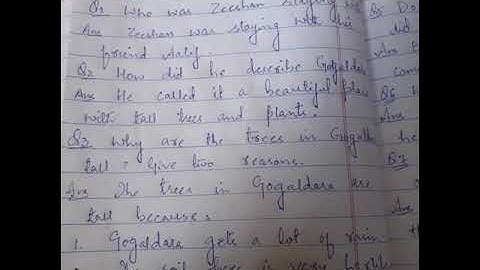 Q1 Who was Zeeshan staying
Ans Zeeshan was staying with his
friend Aatif.
Q2 How did he describe Gogaldara
Ans He called it a beautiful place
with tall trees and plants.
Q3 Why are the trees in Gogalda
tall? Give two reasons.
Ans The trees in Gogaldara are
tall because:
1. Gogaldara gets a lot of rain
soil here is very fertile
Q5 Do
did
Ans
com
Q6
Ans
he
Q7
Ans